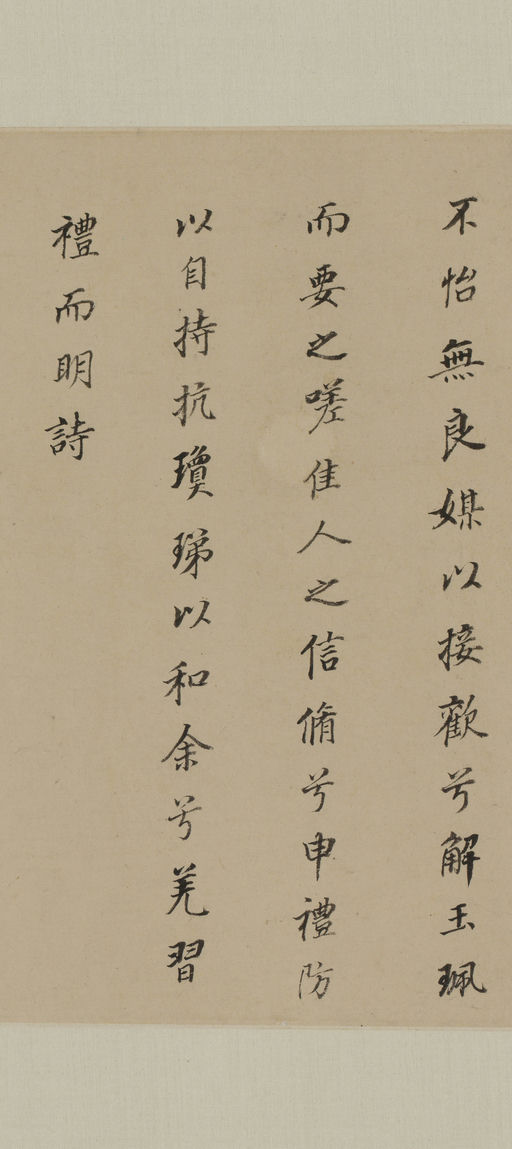 不怡無良媒以接歡兮解玉珮
而要之嗟佳人之信脩兮申禮防
以自持抗瓊珶以和余兮羌習
禮而明詩